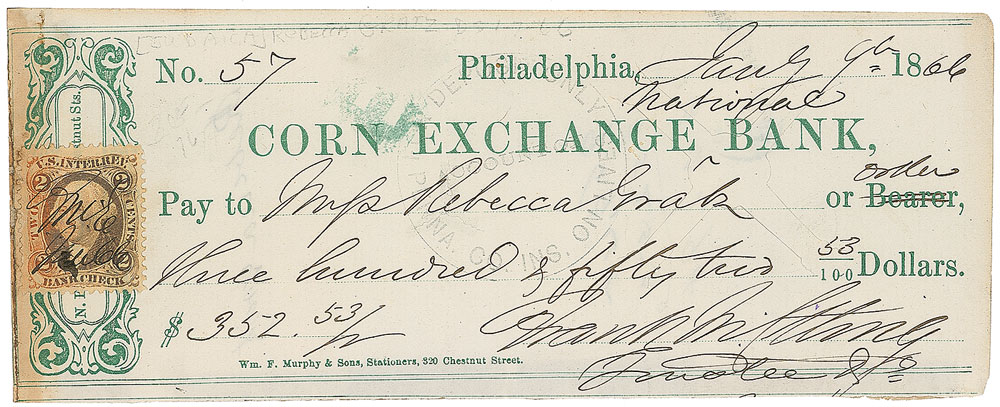 No. 57 Philadelphia, Jany 9th 1866
National
CORN EXCHANGE BANK,
Pay to Miss Rebecca Gratz or Bearer,
order
three hundred & fifty two 53/100 Dollars.
$ 352.53/
Frank M.
Trustee &c
Wm. F. Murphy & Sons, Stationers, 320 Chestnut Street.
U.S. INTER REV.
2 2
TWO CENTS
2 2
BANK CHECK
N.
hestnut Sts.
ACCOUNT
ONLY
CO. INS. ON LIVES